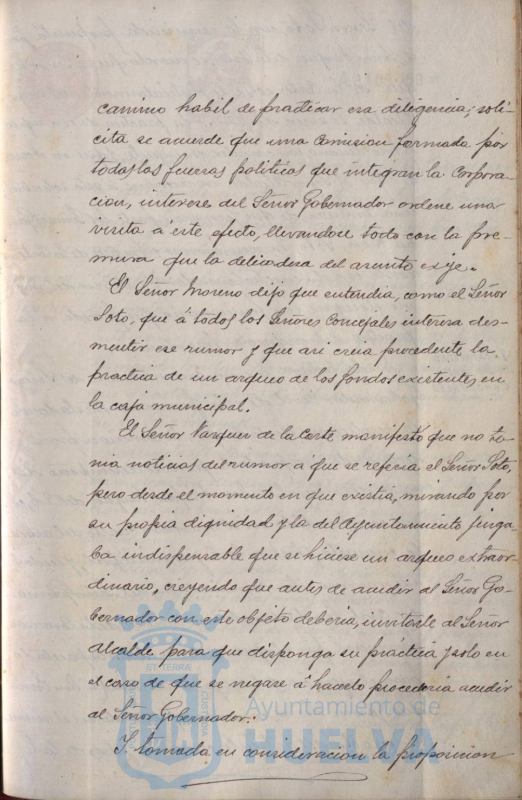 camino habil de practicar esa diligencia; soli-
cita se acuerde que una Comision formada por
todas las fuerzas politicas que integran la Corpora-
cion, interese del Señor Gobernador ordene una
visita á este efecto, llevandose todo con la pre-
mura que la delicadeza del asunto exije.
El Señor Moreno dijo que entendia, como el Señor
Soto, que á todos los Señores Concejales interesa des-
mentir ese rumor y que asi creia procedente la
practica de un arqueo de los fondos existentes en
la caja municipal.
El Señor Vazquez de la Corte manifestó que no te-
nia noticias del rumor á que se referia el Señor Soto,
pero desde el momento en que existia, mirando por
su propia dignidad y la del Ayuntamiento juzga-
ba indispensable que se hiciese un arqueo extraor-
dinario, creyendo que antes de acudir al Señor Go-
bernador con este objeto deberia, invitarse al Señor
Alcalde para que disponga su práctica y solo en
el caso de que se negase á hacerlo procederia acudir
al Señor Gobernador.
Y tomada en consideracion la proposicion
Ayuntamiento de
HUELVA